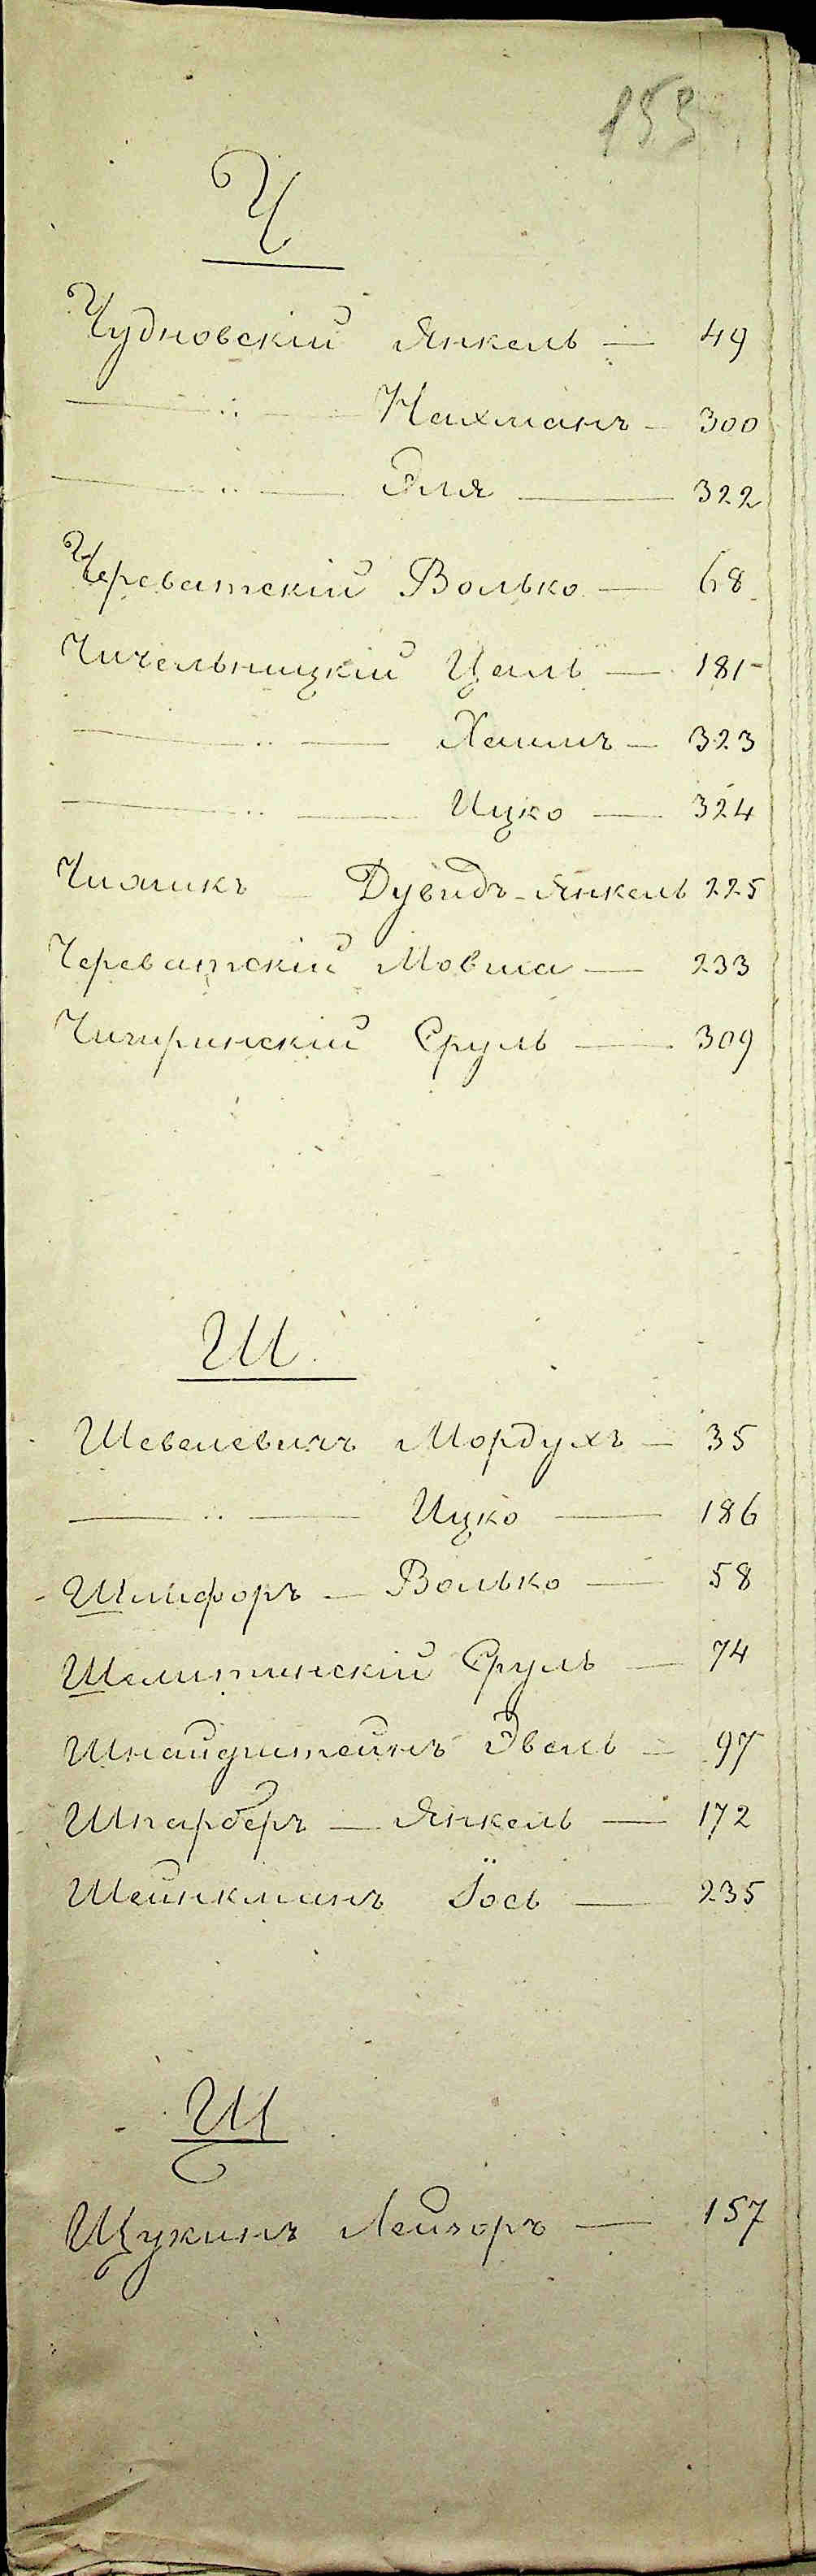 153
Ч
Чудновскій Янкель — 49
— " — Нахманъ — 300
— " — Эля — 322
Череватскій Волько — 68
Чичельницкій Цаль — 181
— " — Хаимъ — 323
— " — Ицко — 324
Чижикъ — Дувидъ-Янкель 225
Череватскій Мовша — 233
Чигиринскій Сруль — 309
Ш.
Шевелевичъ Мордухъ — 35
— " — Ицко — 186
Шлифоръ — Волько — 58
Шамитинскій Сруль — 74
Шнайдштейнъ Эвель — 97
Шпарберъ — Янкель — 172
Шейнкманъ Іось — 235
Щ
Щукинъ Лейзоръ — 157